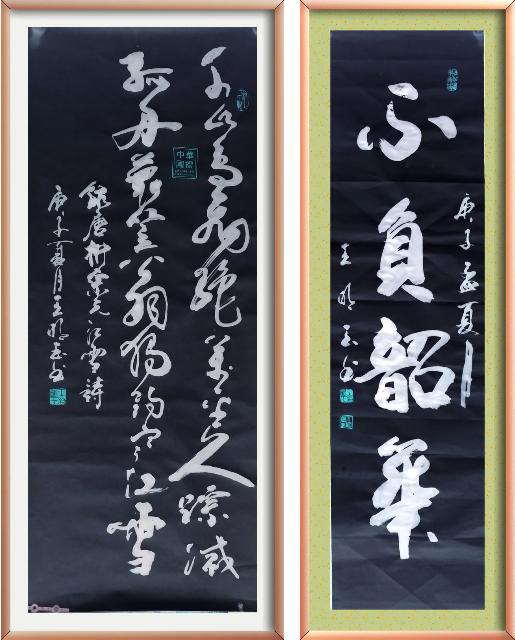 千山鸟飞绝万径人踪灭
孤舟蓑笠翁独钓寒江雪
錄唐柳宗元江雪詩
庚子夏月王明玉书
中華
國楹
不負韶華
庚子孟夏
王明玉书